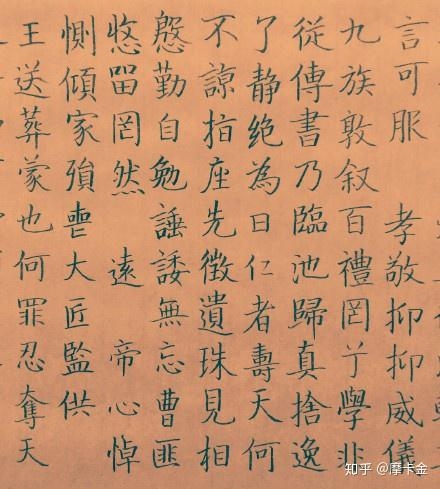 言可服　孝敬抑抑威儀
九族敦叙百禮罔學非
從傳書乃臨池歸真捨逸
了静絶為日仁者壽天何
不諒指座先徵遺珠見相
慇勤自勉諈諉無忘曹匪
悠㽞罔然　遠　帝心悼
惻傾家殞喪大匠監供
王送葬蒙也何罪忍奪天
知乎 @摩卡金